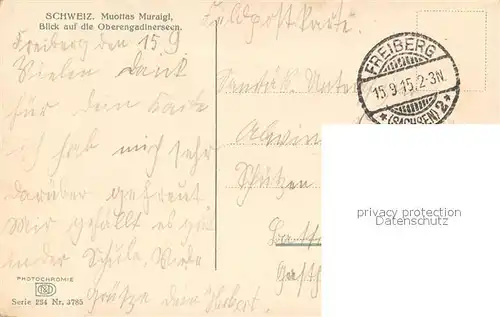 SCHWEIZ. Muottas Muraigl,
Blick auf die Oberengadinerseen.
Feldpostkarte.
Freiberg den 15.9
Vielen Dank
für dein Karte
ich hab mich sehr
darüber gefreut.
Mir gefällt es gut
in der Schule, Viele
Grüße dein Herbert.
FREIBERG
15.9.15.2-3N.
*(SACHSEN)2*
Alwin
Schützen
privacy protection
Datenschutz
PHOTOCHROMIE
Serie 234 Nr. 3785